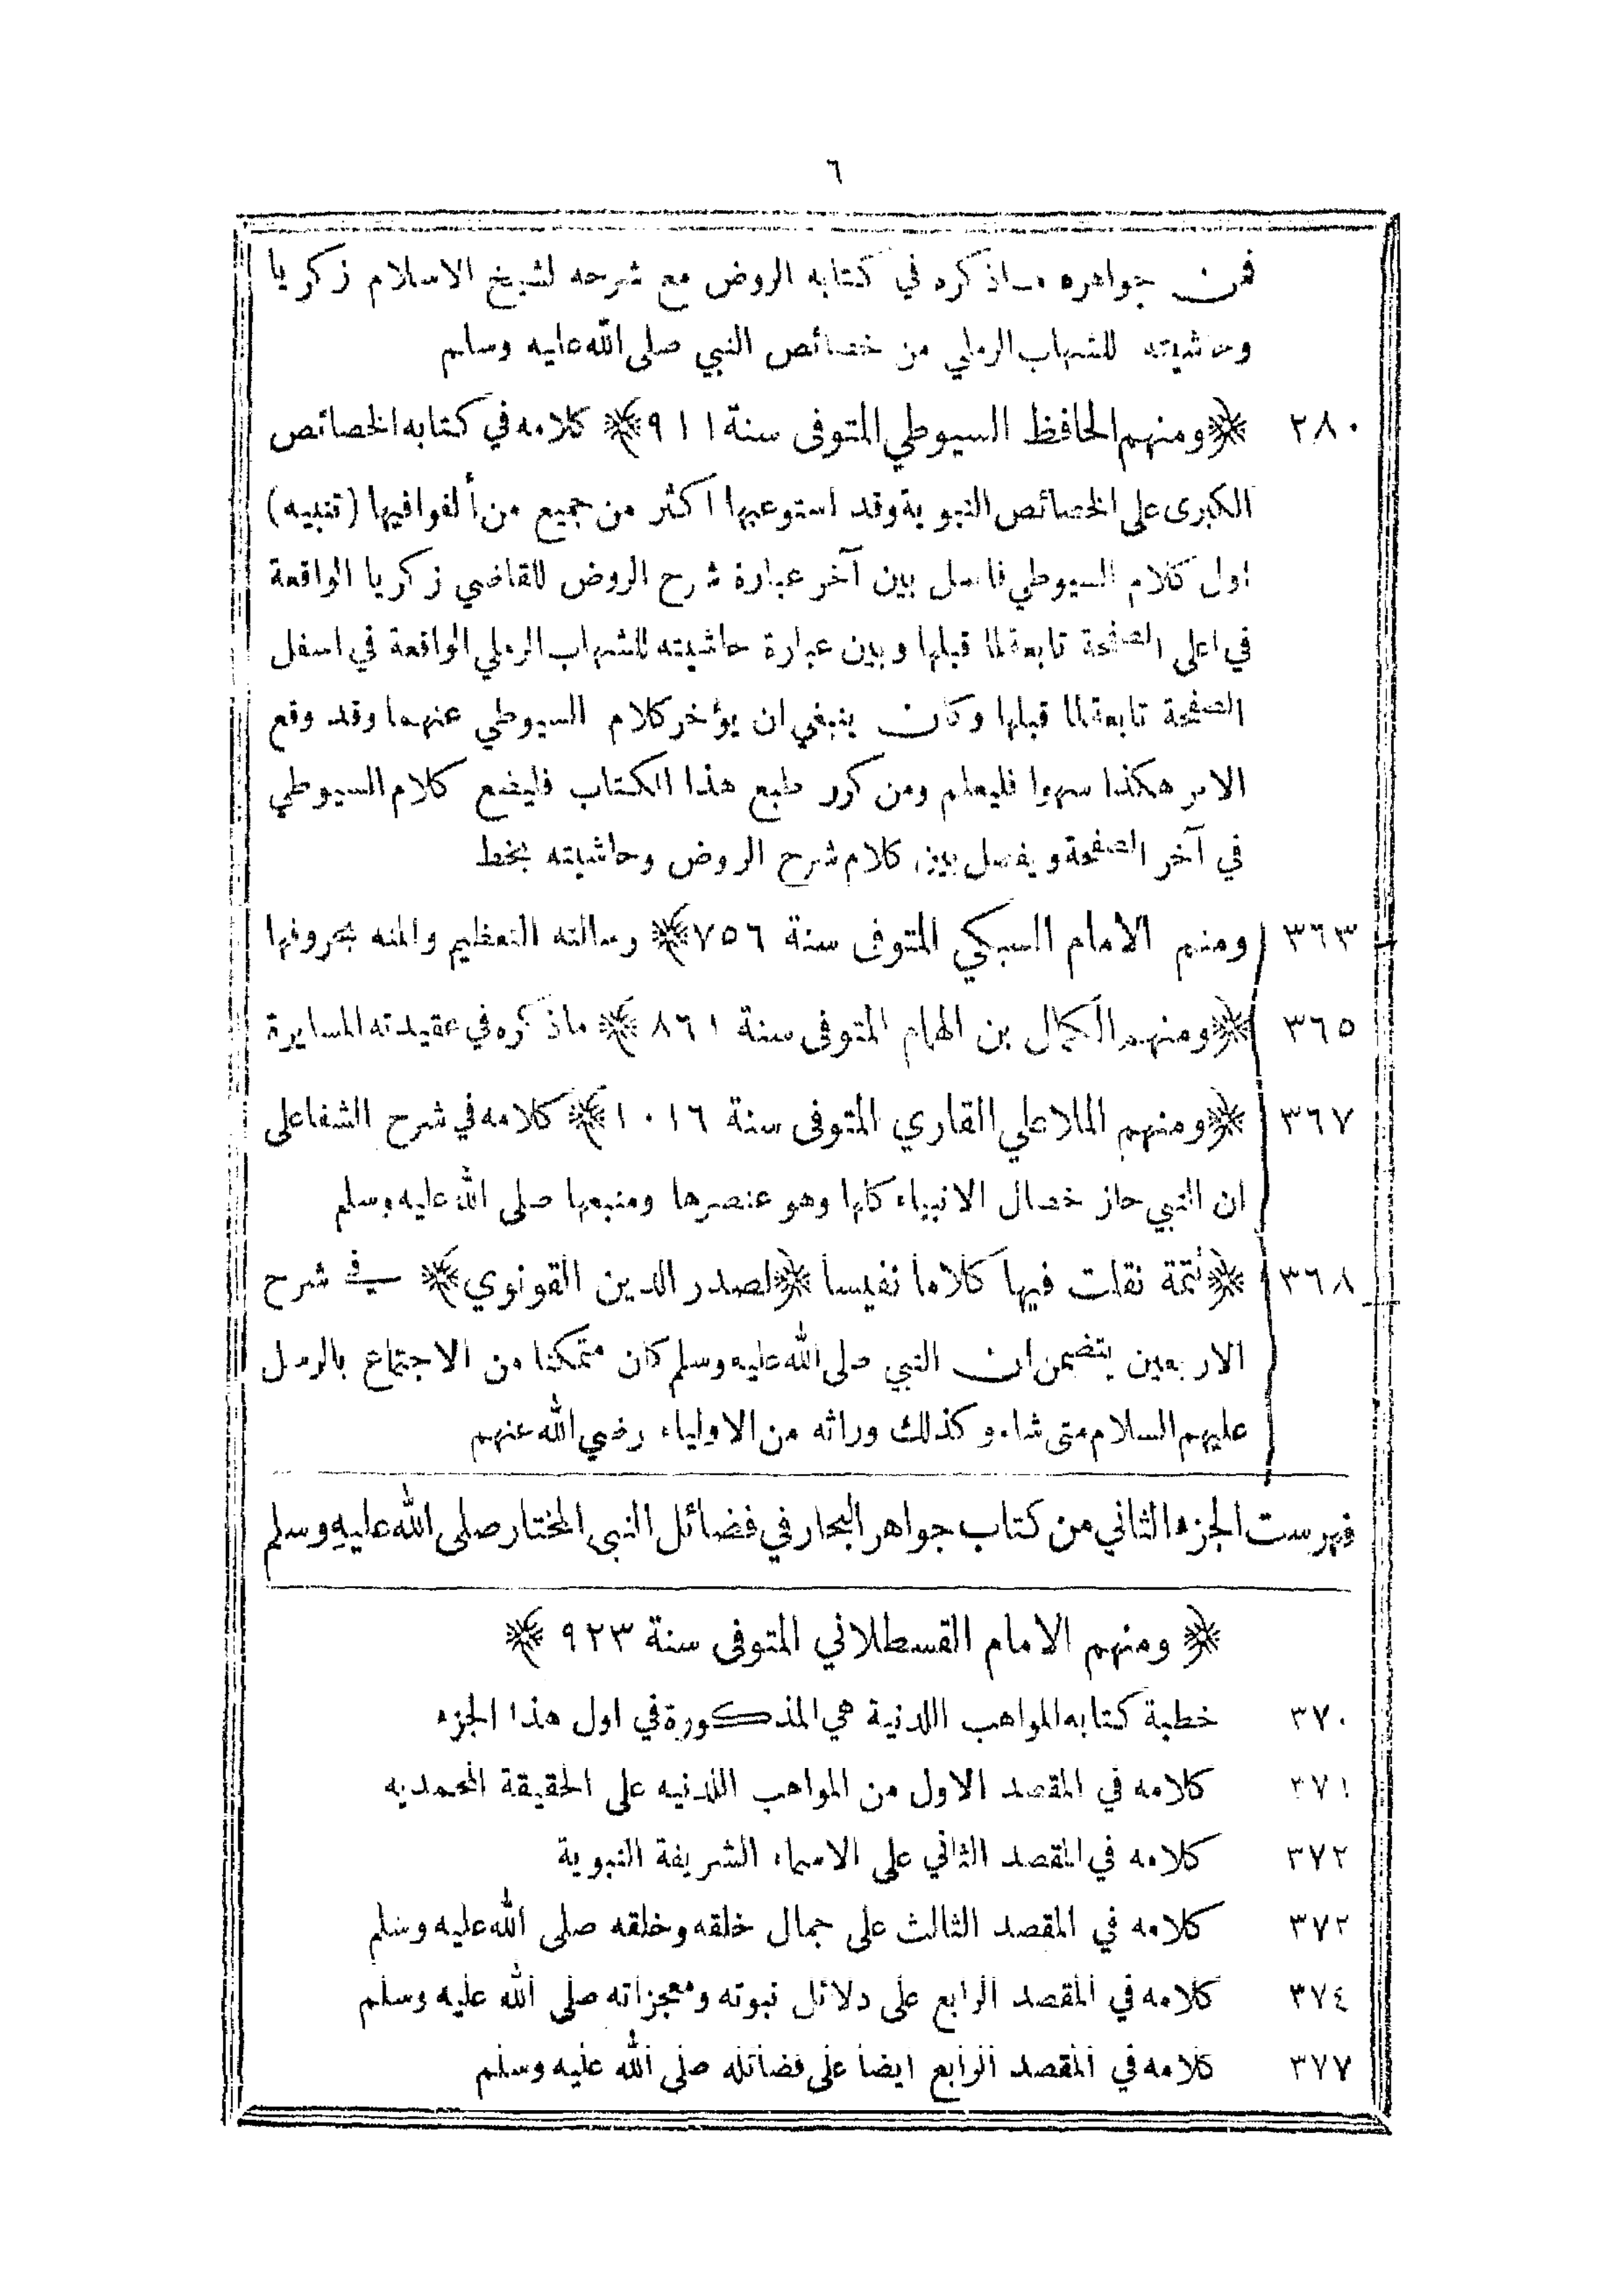 ٦
فمن جواهره ماذكره في كتابه الروض مع شرحه لشيخ الاسلام زكريا
وحاشيته للشهاب الرملي من خصائص النبي صلى الله عليه وسلم
٢٨٠ ﴿ ومنهم الحافظ السيوطي المتوفى سنة ٩١١ ﴾ كلامه في كتابه الخصائص
الكبرى على الخصائص النبوية وقد استوعبها اكثر من جميع من ألفوا فيها (تنبيه)
اول كلام السيوطي فاصل بين آخر عبارة شرح الروض للقاضي زكريا الواقعة
في اعلى الصفحة تابعة لما قبلها وبين عبارة حاشيته للشهاب الرملي الواقعة في اسفل
الصفحة تابعة لما قبلها وكان ينبغي ان يؤخر كلام السيوطي عنهما وقد وقع
الامر هكذا سهوا فليعلم ومن كرر طبع هذا الكتاب فليضع كلام السيوطي
في آخر الصفحة ويفصل بين كلام شرح الروض وحاشيته بخط
٣٦٣ ومنهم الامام السبكي المتوفى سنة ٧٥٦ ﴾ رسالته التعظيم والمنه بحروفها
٣٦٥ ﴿ ومنهم الكمال بن الهمام المتوفى سنة ٨٦١ ﴾ ماذكره في عقيدته المسايرة
٣٦٧ ﴿ ومنهم الملا علي القاري المتوفى سنة ١٠١٦ ﴾ كلامه في شرح الشفا على
ان النبي حاز خصال الانبياء كلها وهو عنصرها ومنبعها صلى الله عليه وسلم
٣٦٨ ﴿ تتمة نقلت فيها كلاما نفيسا ﴿ لصدر الدين القونوي ﴾ في شرح
الاربعين يتضمن ان النبي صلى الله عليه وسلم كان متمكنا من الاجتماع بالرسل
عليهم السلام متى شاء وكذلك وراثه من الاولياء رضي الله عنهم
فهرست الجزء الثاني من كتاب جواهر البحار في فضائل النبي المختار صلى الله عليه وسلم
﴿ ومنهم الامام القسطلاني المتوفى سنة ٩٢٣ ﴾
٣٧٠ خطبة كتابه المواهب اللدنية هي المذكورة في اول هذا الجزء
٣٧١ كلامه في المقصد الاول من المواهب اللدنيه على الحقيقة المحمديه
٣٧٢ كلامه في المقصد الثاني على الاسماء الشريفة النبوية
٣٧٢ كلامه في المقصد الثالث على جمال خلقه وخلقه صلى الله عليه وسلم
٣٧٤ كلامه في المقصد الرابع على دلائل نبوته ومعجزاته صلى الله عليه وسلم
٣٧٧ كلامه في المقصد الرابع ايضا على فضائله صلى الله عليه وسلم